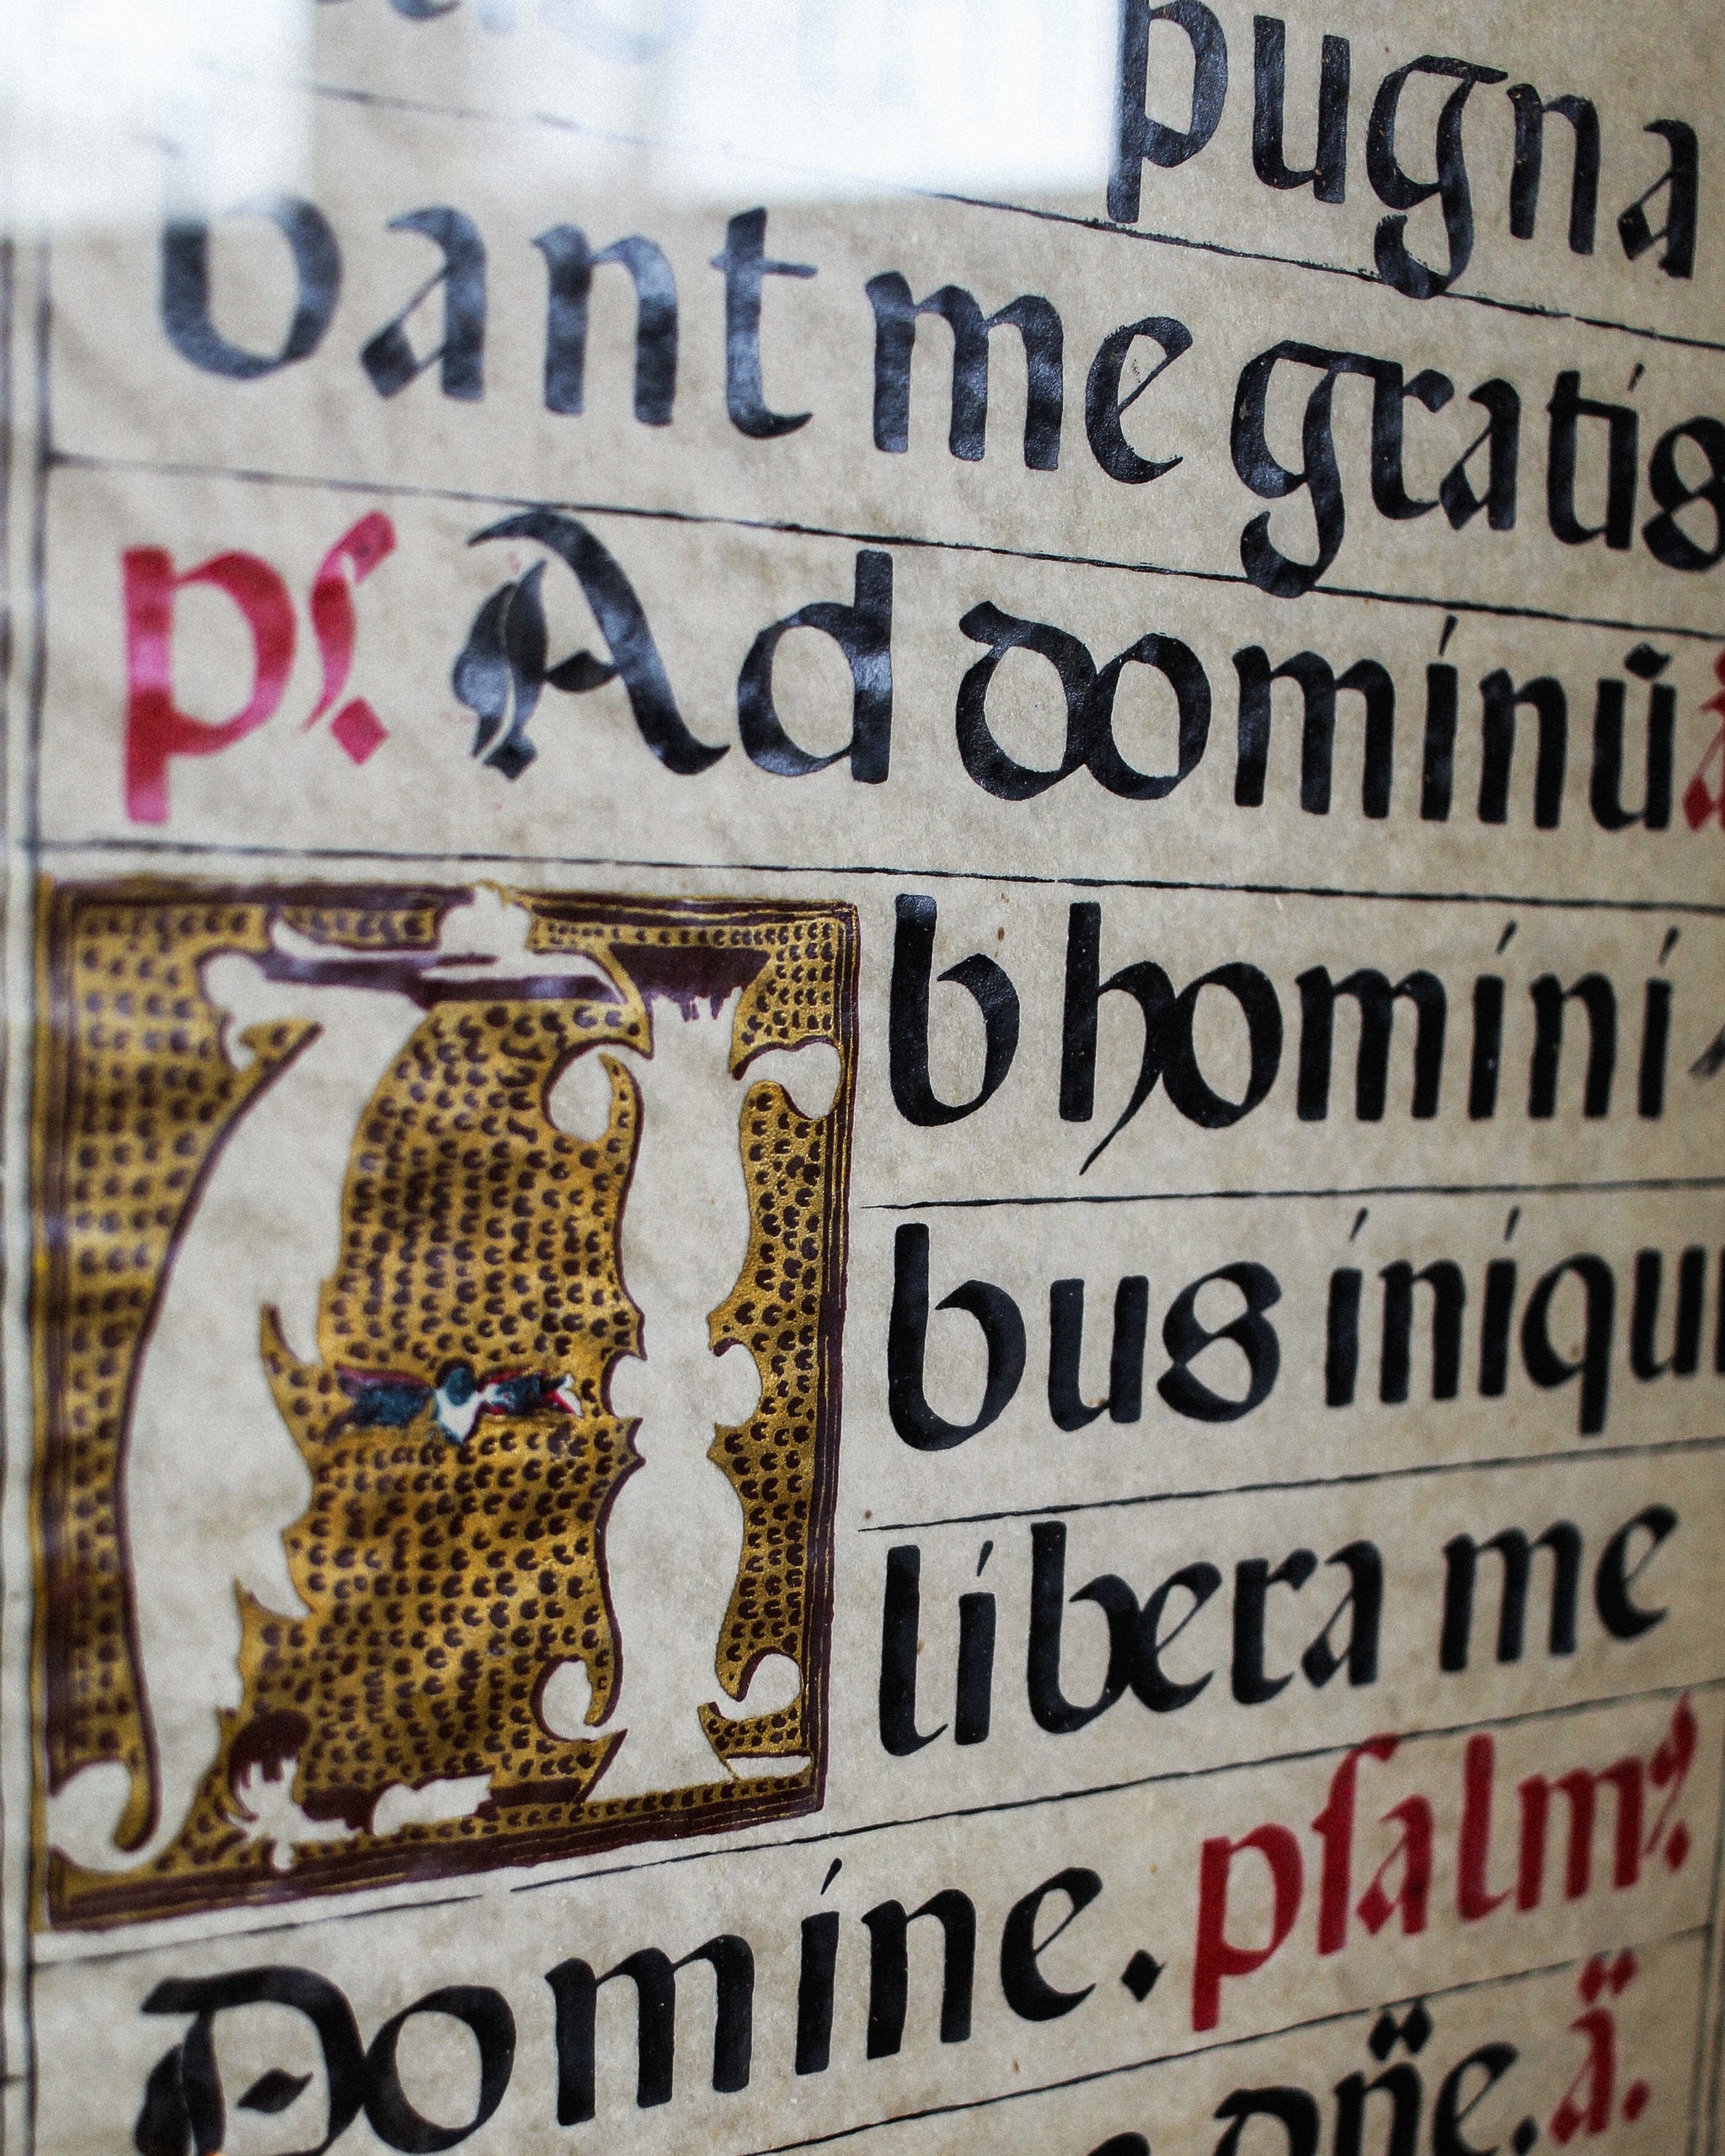 pugna
bant me gratis
ps. Ad dominū a
Ab homini
bus iniqui
libera me
Domine. psalmꝰ.
dn̄e. ā.